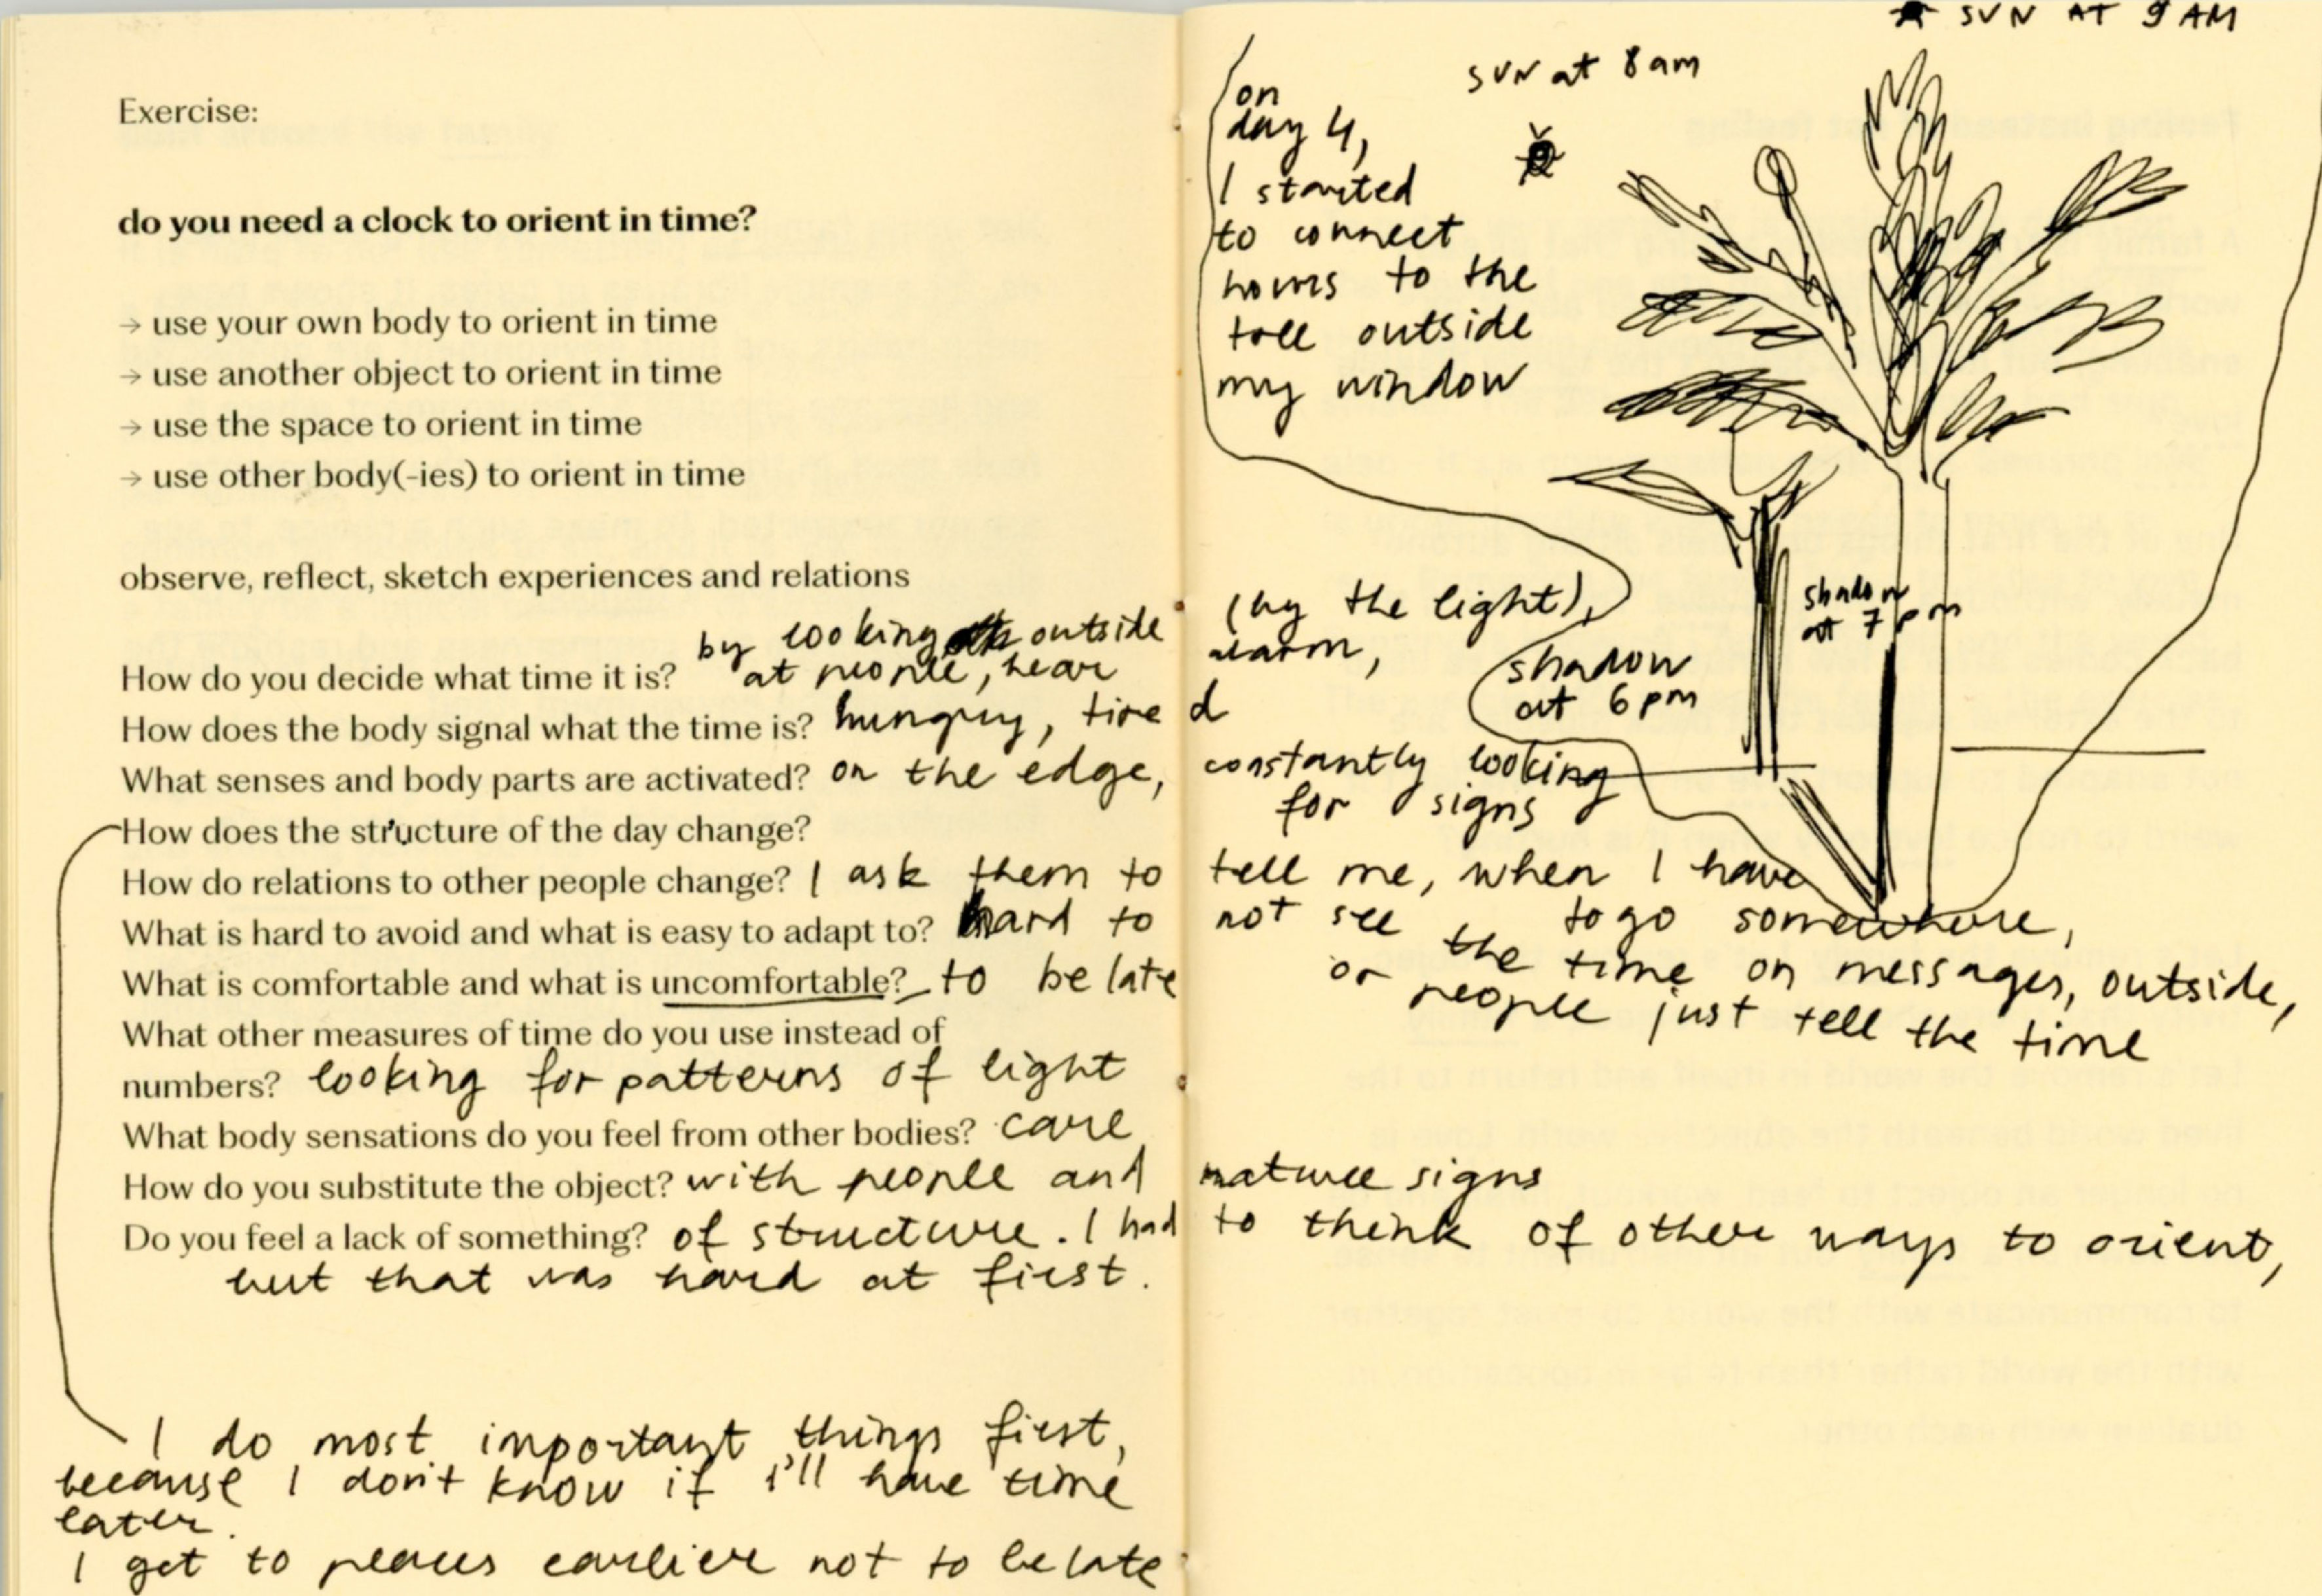 Exercise:
do you need a clock to orient in time?
→ use your own body to orient in time
→ use another object to orient in time
→ use the space to orient in time
→ use other body(-ies) to orient in time
observe, reflect, sketch experiences and relations
by looking outside (by the light),
How do you decide what time it is? at people, hear alarm,
How does the body signal what the time is? hungry, tired
What senses and body parts are activated? on the edge, constantly looking
for signs
How does the structure of the day change?
How do relations to other people change? I ask them to tell me, when I have
to go somewhere,
What is hard to avoid and what is easy to adapt to? hard to not see
the time on messages, outside,
or people just tell the time
What is comfortable and what is uncomfortable? to be late
What other measures of time do you use instead of
numbers? looking for patterns of light
What body sensations do you feel from other bodies? care
How do you substitute the object? with people and nature signs
Do you feel a lack of something? of structure. I had to think of other ways to orient,
but that was hard at first.
I do most important things first,
because I don't know if i'll have time
later.
I get to places earlier not to be late
SUN AT 9 AM
SUN at 8 am
on
day 4,
I started
to connect
hours to the
tree outside
my window
shadow
at 7 pm
shadow
at 6 pm